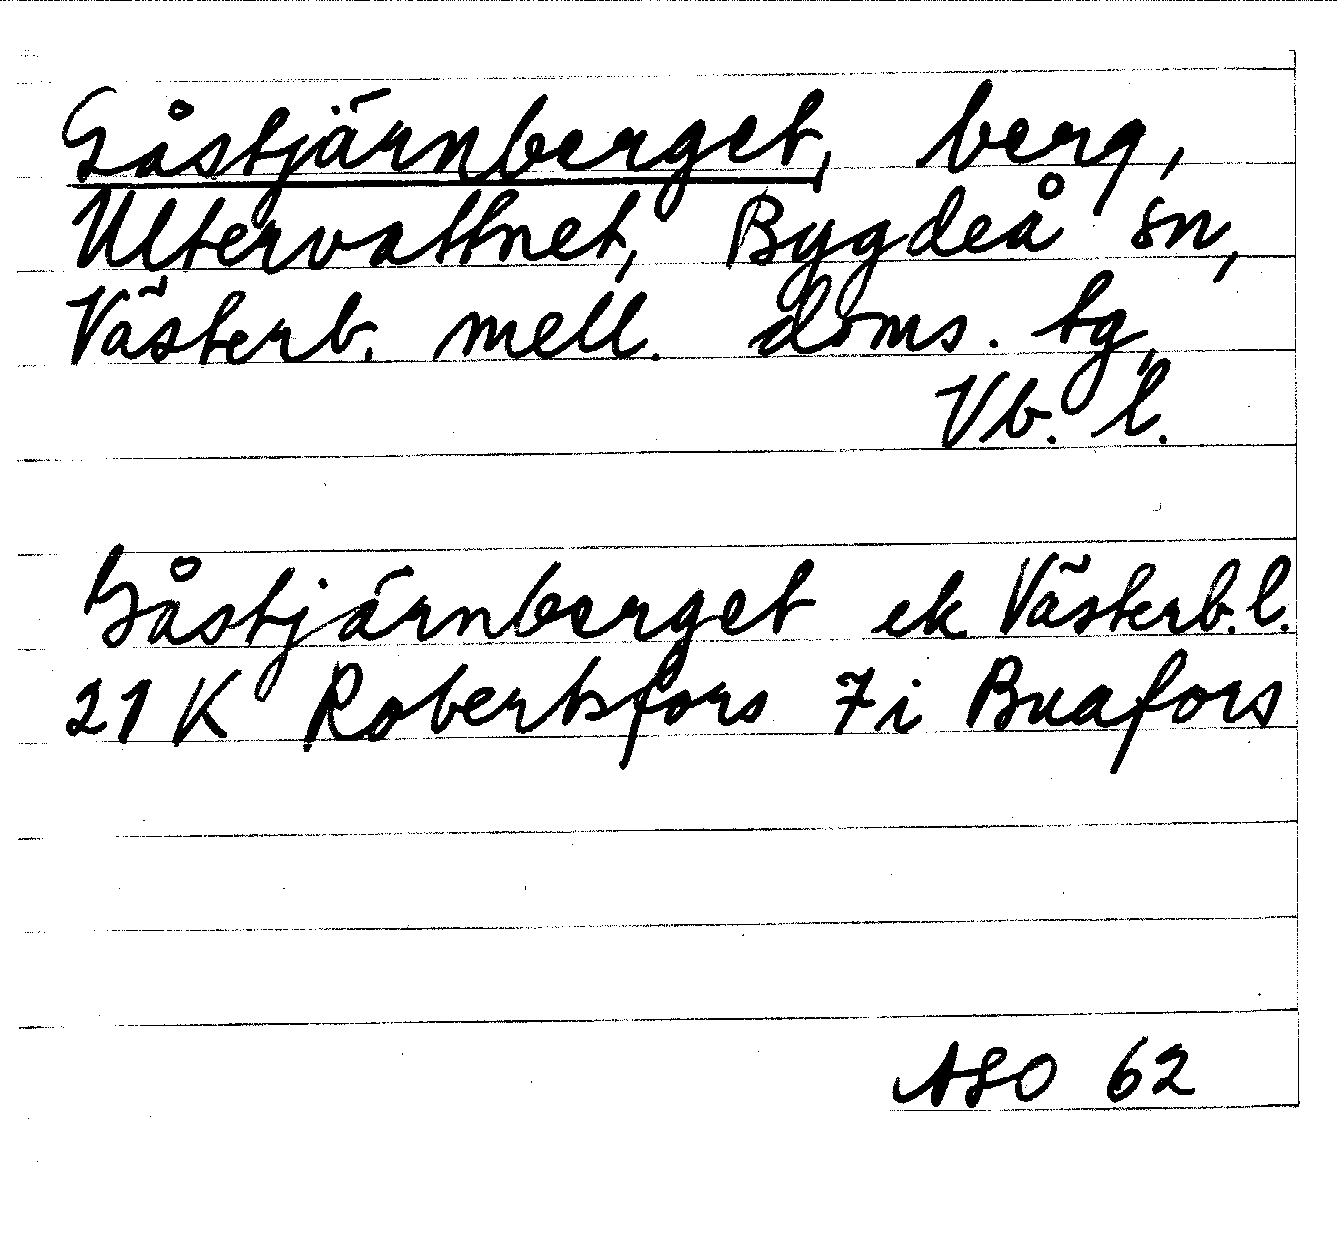 Gåstjärnberget, berg,
Ultervattnet, Bygdeå sn,
Västerb. mell. doms. tg,
Vb. l.
Gåstjärnberget ek Västerb. l.
21 K Robertsfors 7i Buafors
ASO 62